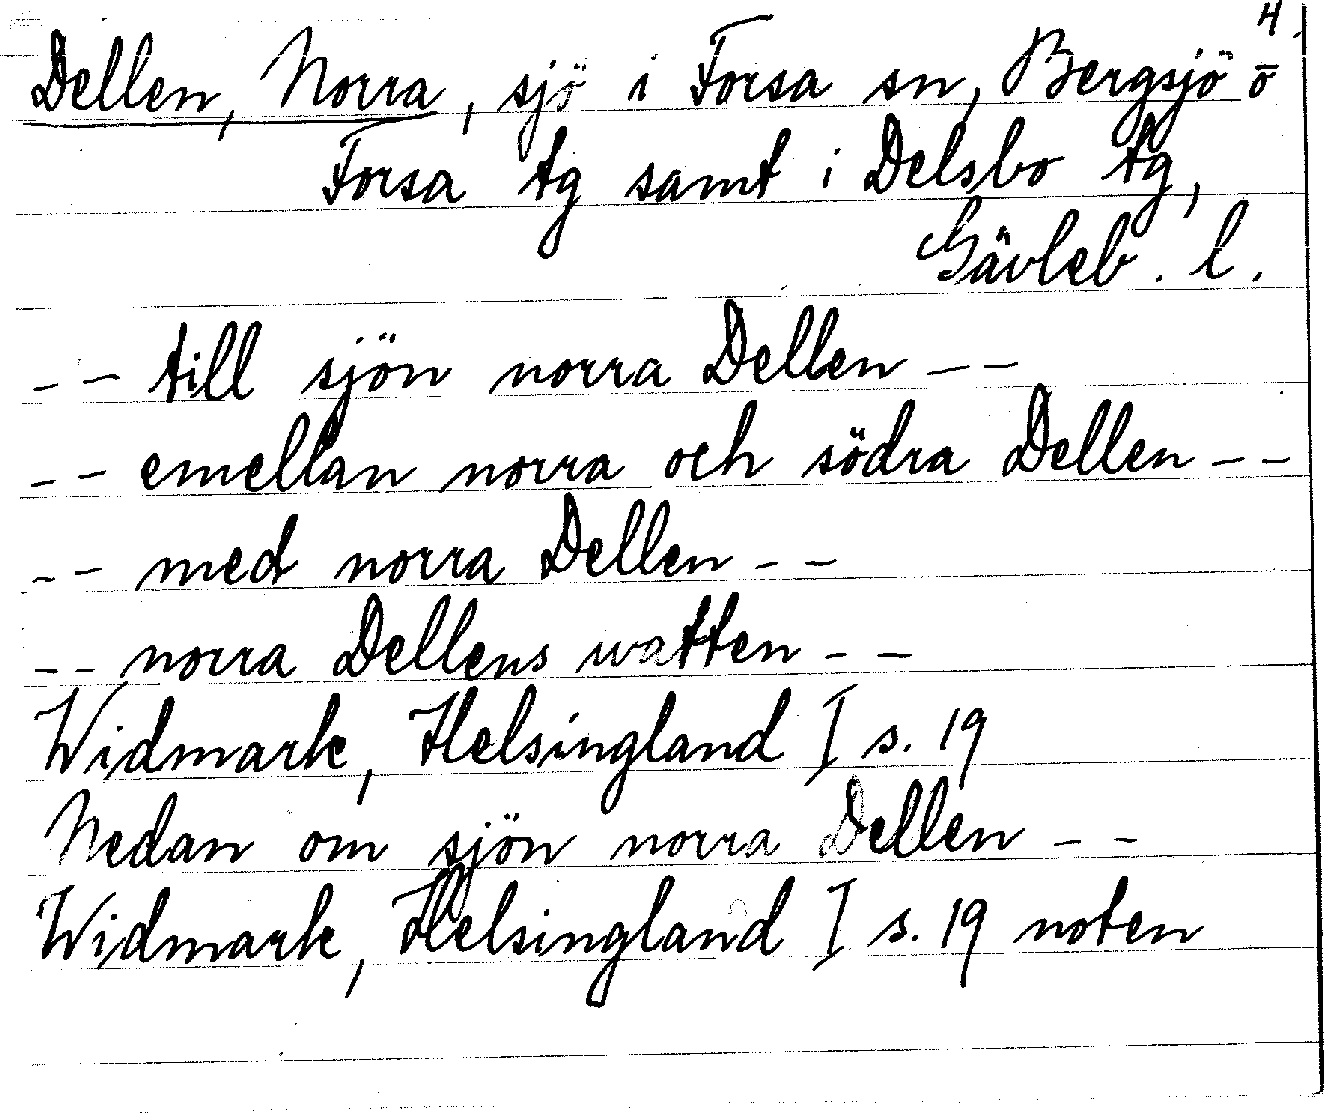 4.
Dellen, Norra, sjö i Forsa sn, Bergsjö o
Forsa tg samt i Delsbo tg,
Gävleb. l.
-- till sjön norra Dellen --
-- emellan norra och södra Dellen --
-- med norra Dellen --
-- norra Dellens watten --
Widmark, Helsingland I s. 19
Nedan om sjön norra Dellen --
Widmark, Helsingland I s. 19 noten